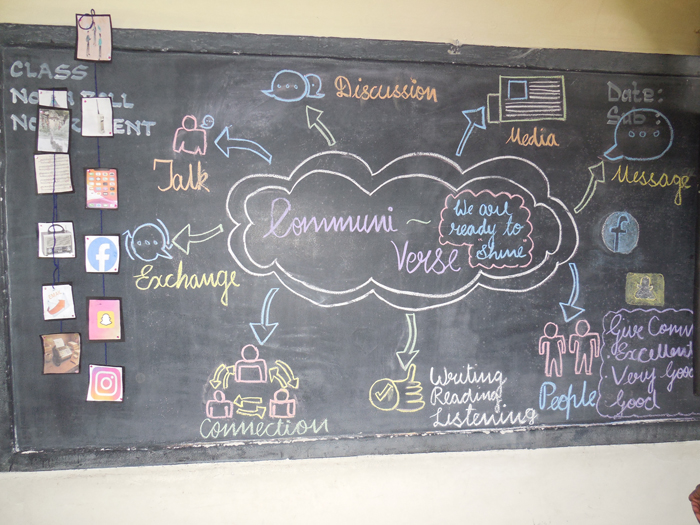 CLASS
Discussion
Media
Date:
Sub:
Talk
Message
Communi ~
Verse
We are
ready to
"Shine"
Exchange
Connection
Writing
Reading
Listening
People
Give Comm
Excellent
Very Good
Good